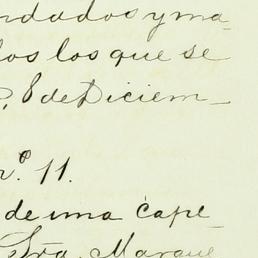 ndados y ma_
los los que se
8 de Diciem_
nº. 11.
de una cape_
Sra. Marque